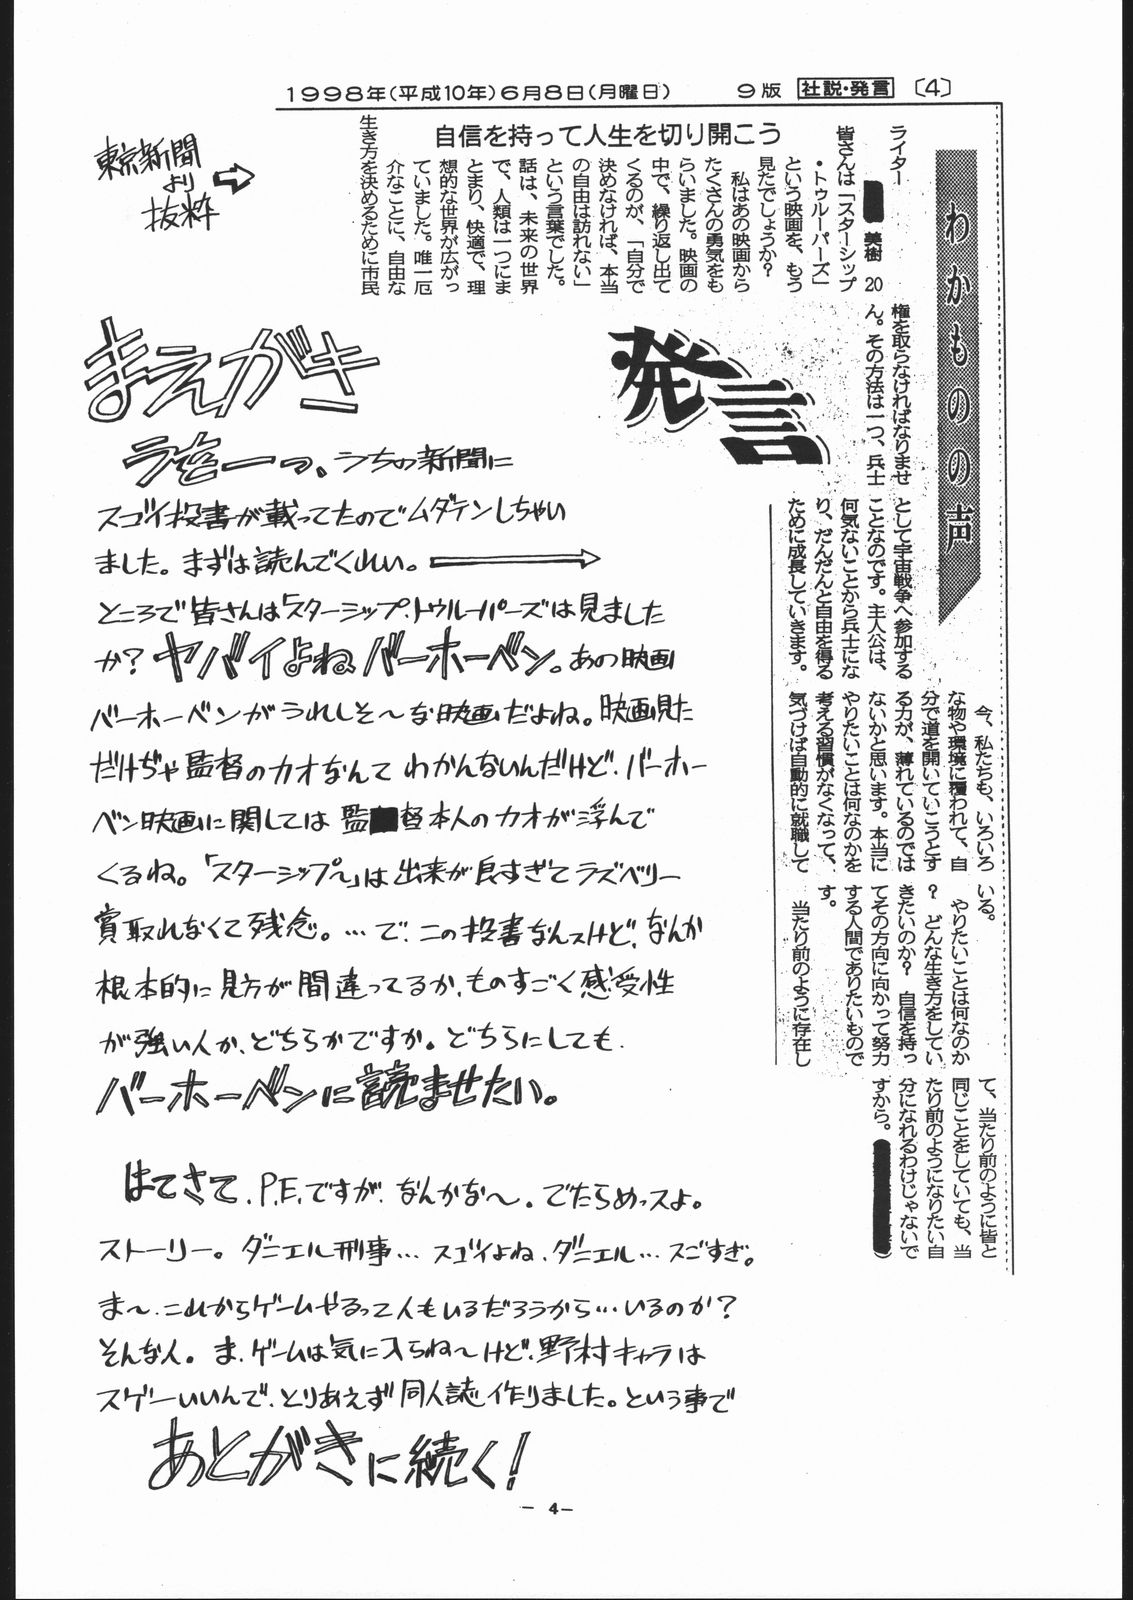 1998年(平成10年)6月8日(月曜日)　9版　社説・発言　〔4〕
わかものの声
発言
自信を持って人生を切り開こう
ライター
美樹 20
皆さんは「スターシップ
・トゥルーパーズ」
という映画を、もう
見たでしょうか?
私はあの映画から
たくさんの勇気をも
らいました。映画の
中で、繰り返し出て
くるのが、「自分で
決めなければ、本当
の自由は訪れない」
という言葉でした。
話は、未来の世界
で、人類は一つにま
とまり、快適で、理
想的な世界が広がっ
ていました。唯一厄
介なことに、自由な
生き方を決めるために市民
権を取らなければなりませ
ん。その方法は一つ、兵士
として宇宙戦争へ参加する
ことなのです。主人公は、
何気ないことから兵士にな
り、だんだんと自由を得る
ために成長していきます。
今、私たちも、いろいろ
な物や環境に覆われて、自
分で道を開いていこうとす
る力が、薄れているのでは
ないかと思います。本当に
やりたいことは何なのかを
考える習慣がなくなって、
気づけば自動的に就職して
いる。
やりたいことは何なのか
? どんな生き方をしてい
きたいのか? 自信を持っ
てその方向に向かって努力
する人間でありたいもので
す。
当たり前のように存在し
て、当たり前のように皆と
同じことをしていても、当
たり前のようになりたい自
分になれるわけじゃないで
すから。
東京新聞
より
抜粋
まえがき
うちの新聞に
スゴイ投書が載ってたのでムダテンしちゃい
ました。まずは読んでくれい。
ところで皆さんは「スターシップ・トゥルーパーズ」は見ました
か? ヤバイよねバーホーベン。あの映画
バーホーベンがうれしそ〜な映画だよね。映画見た
だけぢゃ監督のカオなんてわかんないんだけど、バーホー
ベン映画に関しては監督本人のカオが浮んで
くるね。「スターシップ〜」は出来が良すぎてラズベリー
賞取れなくて残念。…で、この投書なんスけど、なんか
根本的に見方が間違ってるか、ものすごく感受性
が強い人か、どちらかですか。どちらにしても、
バーホーベンに読ませたい。
はてさて、P.E.ですが、なんかな〜。でたらめっスよ。
ストーリー。ダニエル刑事…スゴイよね、ダニエル…スごすぎ。
ま〜、これからゲームやるって人もいるだろうから…いるのか?
そんな人。ま、ゲームは気に入らね〜けど、野村キャラは
スゲーいいんで、とりあえず同人誌作りました。という事で
あとがきに続く!
- 4 -